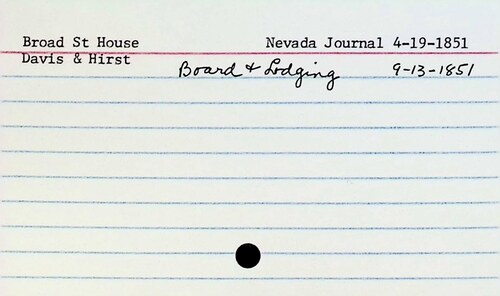 Broad St House Nevada Journal 4-19-1851
Davis & Hirst Board & Lodging 9-13-1851